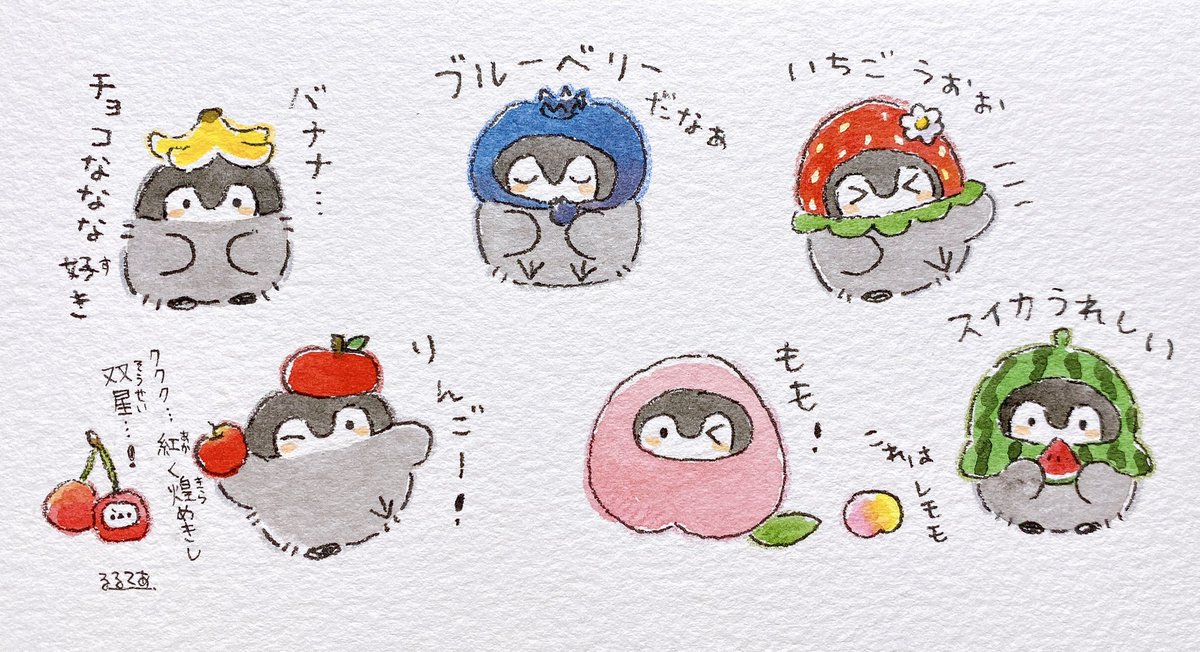 バナナ…
チョコななな
好き
す
ブルーベリー
だなぁ
いちご うぉぉ
ククク…
双星…!
そうせい
紅く煌めきし
あか
きら
るるてあ
りんごー!
もも!
これは
レモモ
スイカうれしい